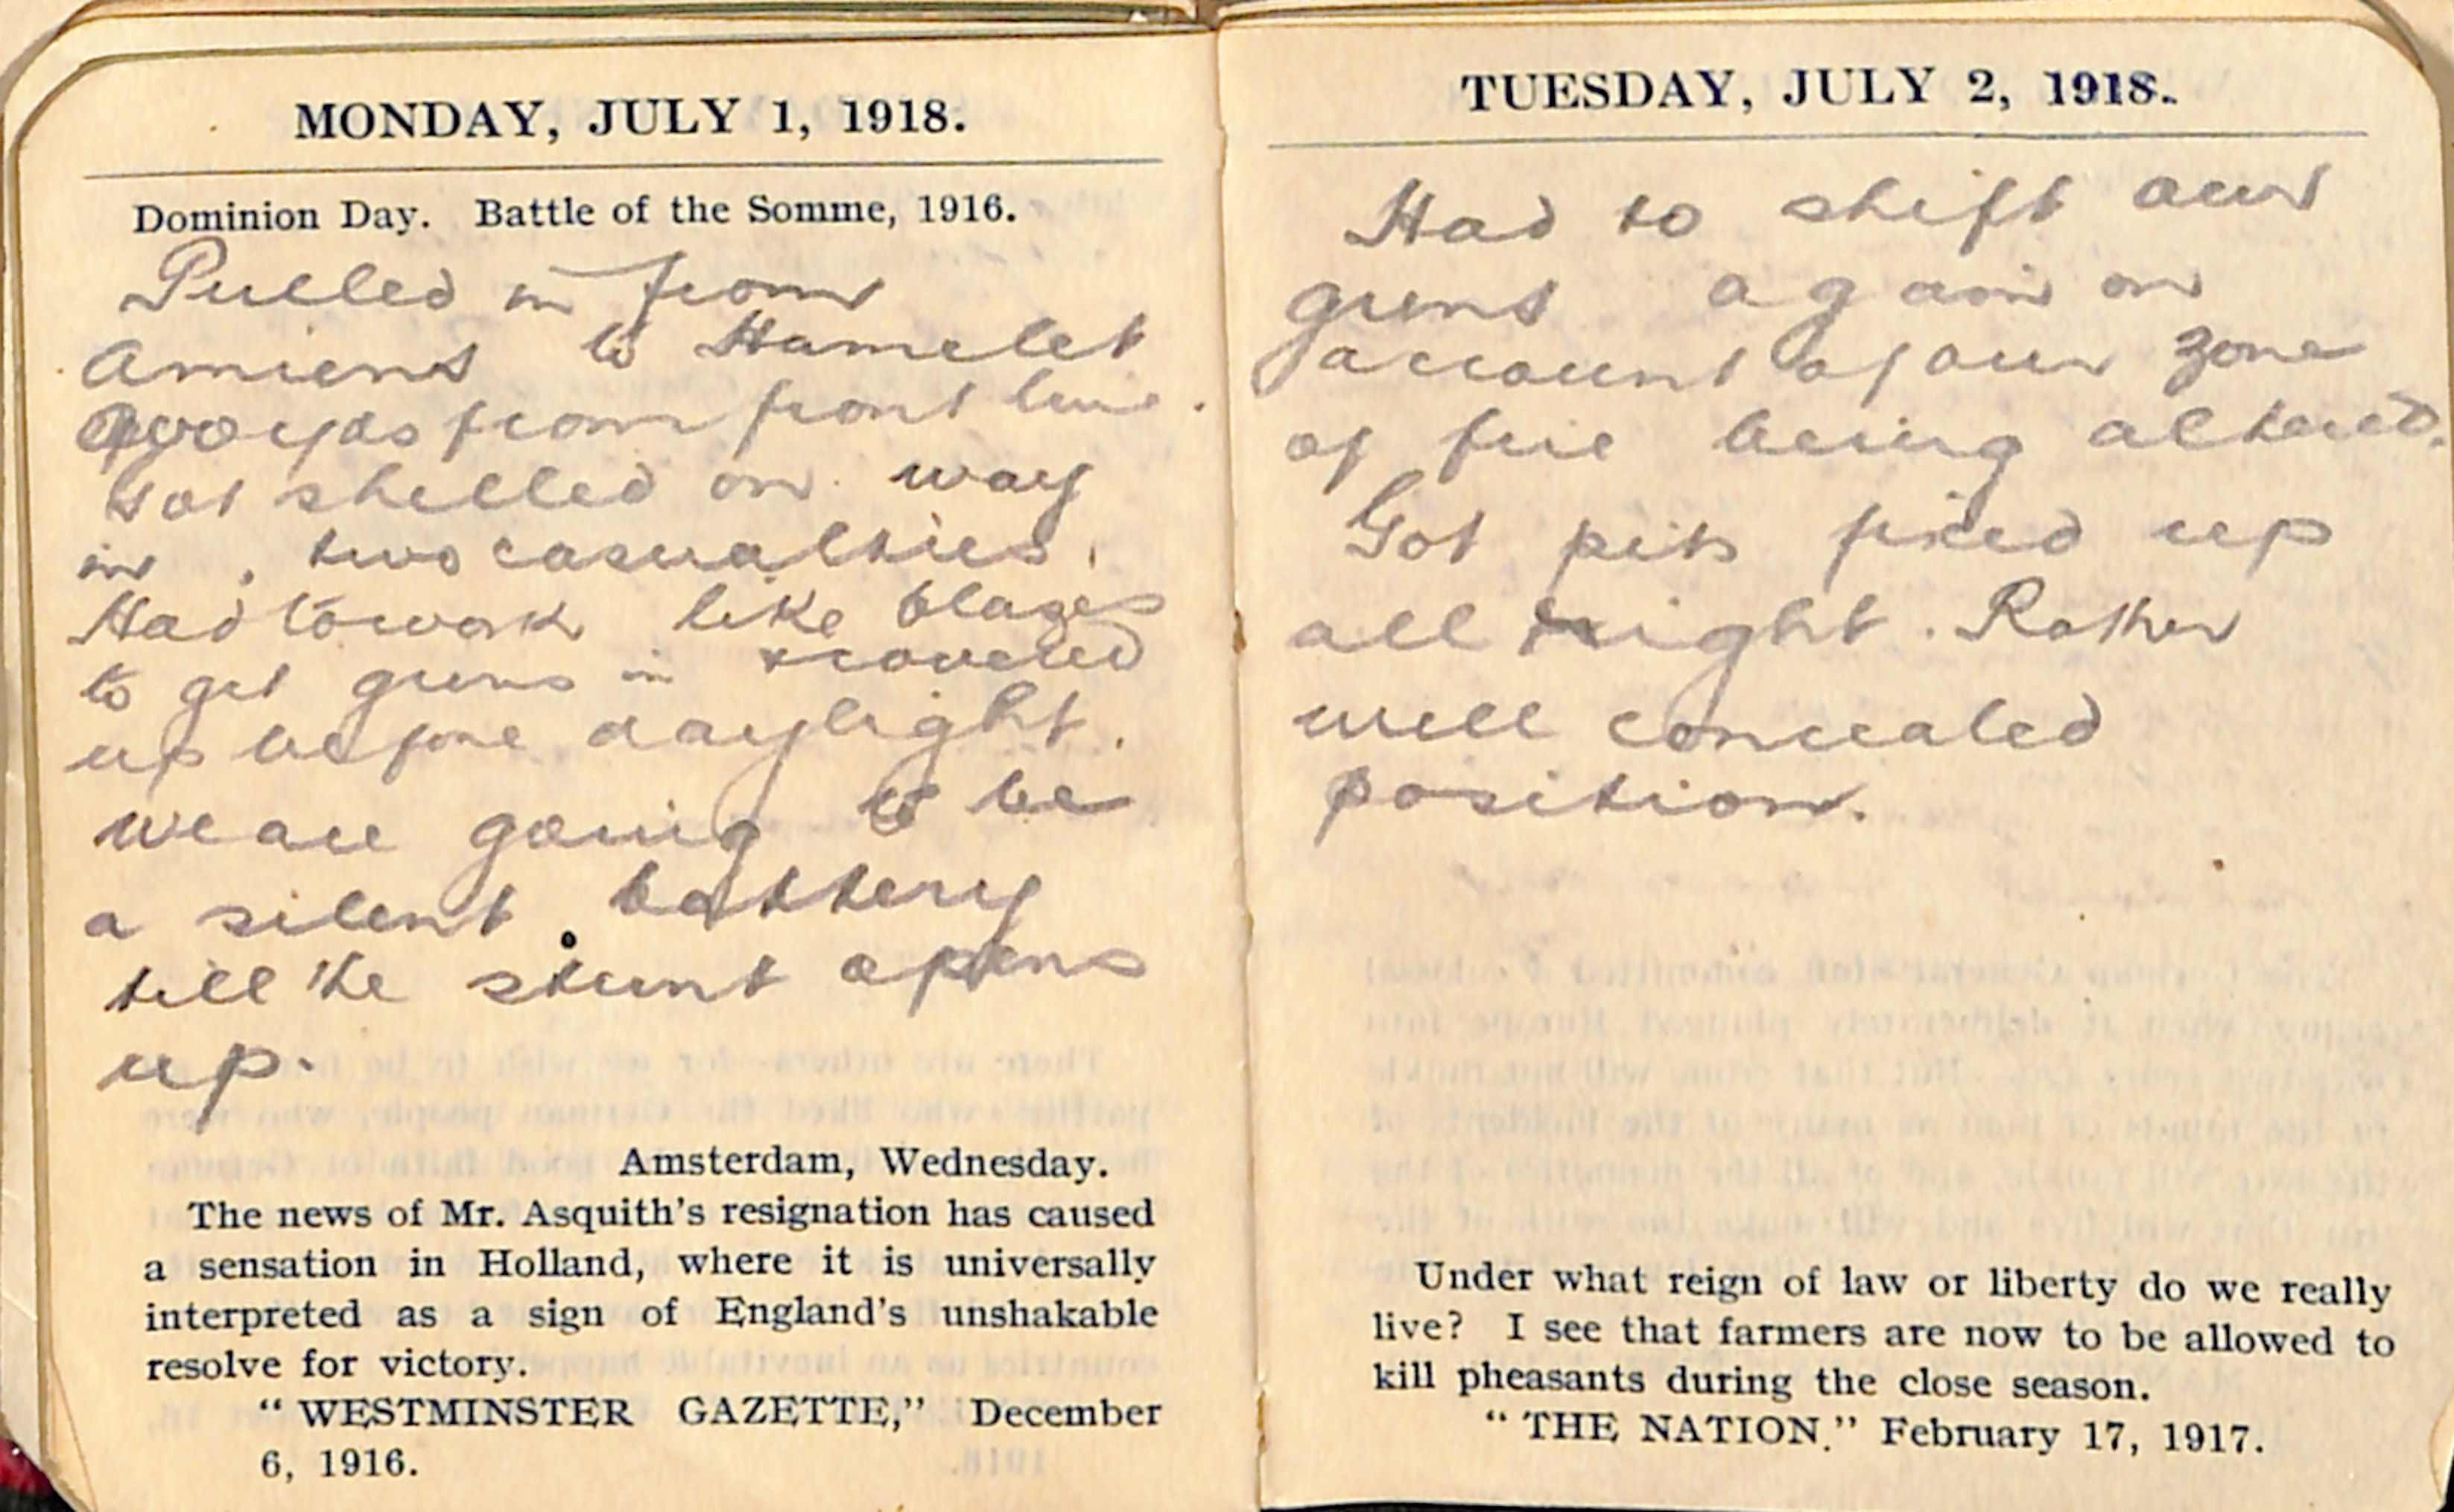 MONDAY, JULY 1, 1918.
Dominion Day. Battle of the Somme, 1916.
Pulled in from
Amiens to Hamelet
yds from front line.
Got shelled on way
in, two casualties.
Had to work like blazes
to get guns in & covered
up before daylight.
We are going to be
a silent battery
till the stunt opens
up.
Amsterdam, Wednesday.
The news of Mr. Asquith's resignation has caused
a sensation in Holland, where it is universally
interpreted as a sign of England's unshakable
resolve for victory.
"WESTMINSTER GAZETTE," December
6, 1916.
TUESDAY, JULY 2, 1918.
Had to shift our
guns again on
account of our zone
of fire being altered.
Got pits fixed up
all right. Rather
well concealed
position.
Under what reign of law or liberty do we really
live? I see that farmers are now to be allowed to
kill pheasants during the close season.
"THE NATION." February 17, 1917.